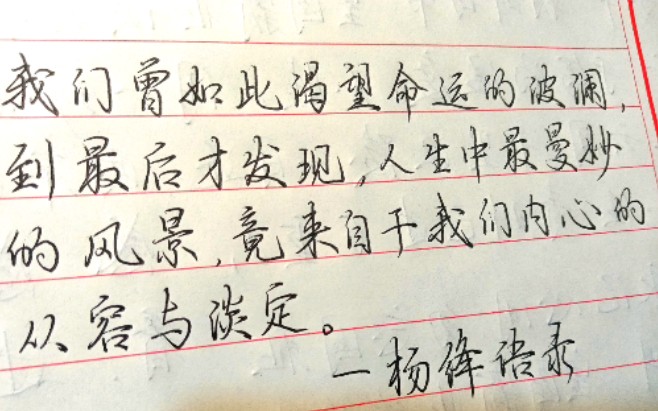 我们曾如此渴望命运的波澜,
到最后才发现,人生中最曼妙
的风景,竟来自于我们内心的
从容与淡定。
一杨绛语录